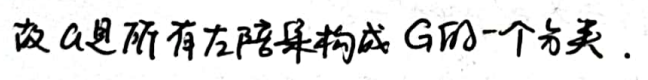 故G是所有左陪集构成G的一个分类.